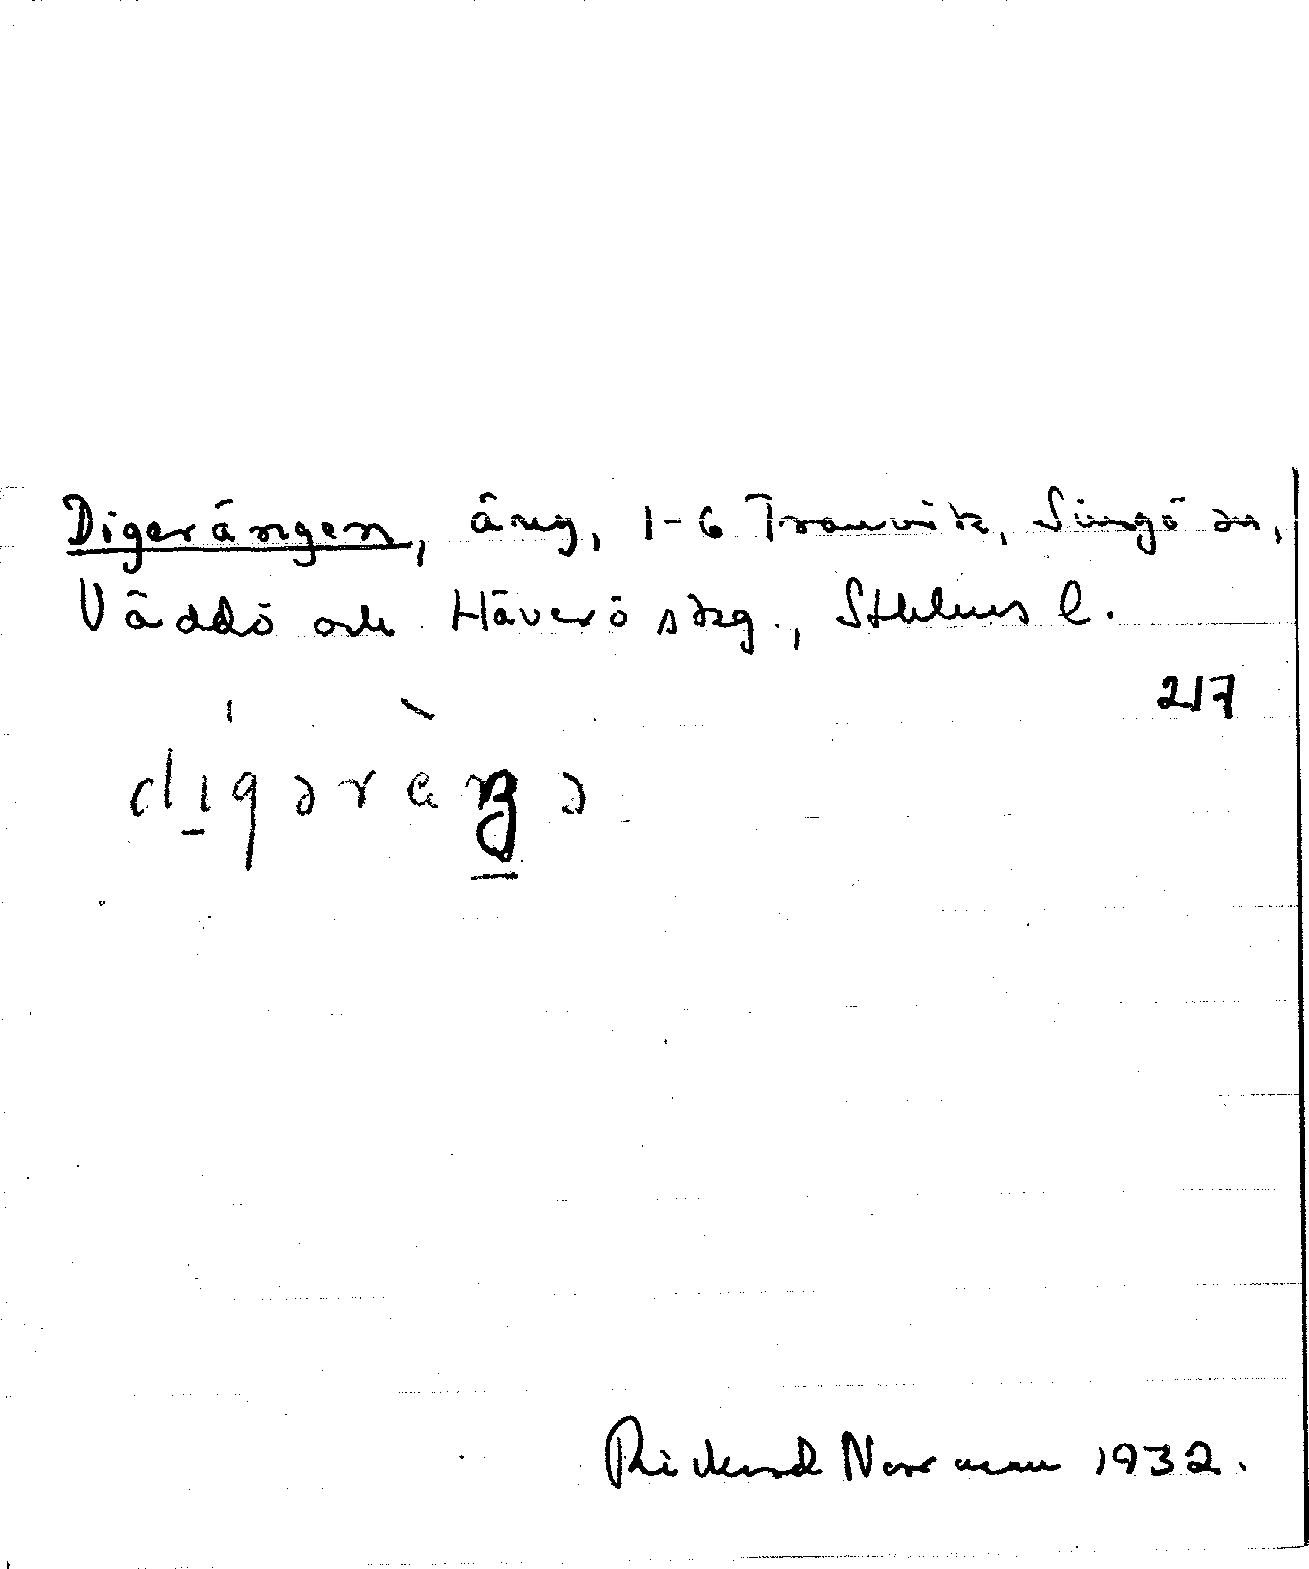 Digerängen, äng, 1-6 Tranvik, Singö sn,
Väddö och Häverö skg., Sthlms l.
217
Rickard Norrman 1932.